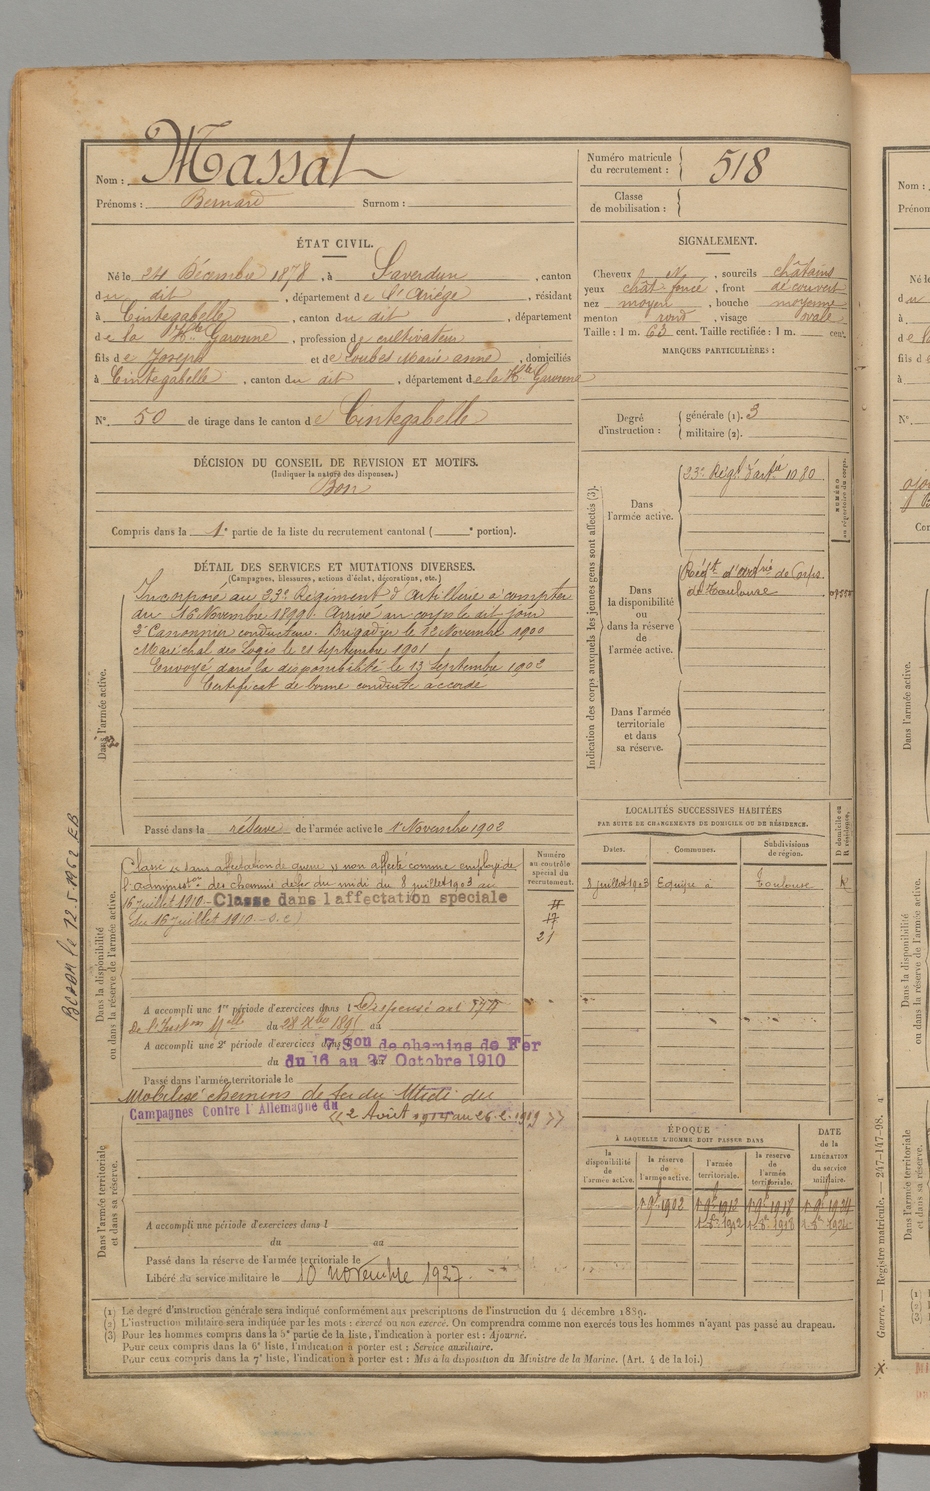 Nom : Massat
Prénoms : Bernard Surnom :
Numéro matricule
du recrutement : 518
Classe
de mobilisation :
ÉTAT CIVIL.
Né le 24 Décembre 1878, à Saverdun, canton
du dit, département de l'Ariége, résidant
à Cintegabelle, canton du dit, département
de la Hte Garonne, profession de cultivateur
fils de Joseph et de Loubet Marie anne, domiciliés
à Cintegabelle, canton du dit, département de la Hte Garonne
N° 50 de tirage dans le canton de Cintegabelle
SIGNALEMENT.
Cheveux, sourcils châtains
yeux chat foncé, front découvert
nez moyen, bouche moyenne
menton rond, visage ovale
Taille : 1 m. 63 cent. Taille rectifiée : 1 m. cent.
MARQUES PARTICULIÈRES :
Degré
d'instruction :
générale (1). 3
militaire (2).
DÉCISION DU CONSEIL DE REVISION ET MOTIFS.
(Indiquer la nature des dispenses.)
Bon
Compris dans la 1e partie de la liste du recrutement cantonal ( e portion).
DÉTAIL DES SERVICES ET MUTATIONS DIVERSES.
(Campagnes, blessures, actions d'éclat, décorations, etc.)
Dans l'armée active.
Incorporé au 23e Régiment d'Artillerie à compter
du 16 Novembre 1899. Arrivé au corps le dit jour
2e Canonnier conducteur. Brigadier le 12 Novembre 1900
Maréchal des Logis le 21 septembre 1901
Envoyé dans la disponibilité le 13 septembre 1902
Certificat de bonne conduite accordé
Passé dans la réserve de l'armée active le 1er Novembre 1902
Indication des corps auxquels les jeunes gens sont affectés (3).
Dans
l'armée active.
23e Régt d'artie 1080
NUMÉRO
au répertoire du corps.
Dans
la disponibilité
ou
dans la réserve
de
l'armée active.
Régt d'artie de Corps
de Toulouse
Dans l'armée
territoriale
et dans
sa réserve.
LOCALITÉS SUCCESSIVES HABITÉES
PAR SUITE DE CHANGEMENTS DE DOMICILE OU DE RÉSIDENCE.
Dates. Communes. Subdivisions
de région.
D domicile ou
R résidence.
8 juillet 1903 Toulouse
Dans la disponibilité
ou dans la réserve de l'armée active.
Classé "sans affectation" non affecté comme employé de
l'adminisson des chemins de fer du midi du 8 juillet 1903 au
16 juillet 1910. Classé dans l'affectation spéciale
du 16 juillet 1910.
Numéro
au contrôle
spécial du
recrutement.
17
21
A accompli une 1re période d'exercices dans l Dispensé art
du au
A accompli une 2e période d'exercices dans 7 Son de chemins de Fer
du 16 au 27 Octobre 1910
Passé dans l'armée territoriale le
Mobilisé chemins de fer du Midi du
Campagnes Contre l'Allemagne du « 2 Août 1914 au 26.2.1919 »
Dans l'armée territoriale
et dans sa réserve.
A accompli une période d'exercices dans l
du au
Passé dans la réserve de l'armée territoriale le
Libéré du service militaire le 10 novembre 1927.
ÉPOQUE
À LAQUELLE L'HOMME DOIT PASSER DANS
la
disponibilité
de
l'armée active.
la réserve
de
l'armée active.
l'armée
territoriale.
la réserve
de
l'armée
territoriale.
DATE
de la
LIBÉRATION
du service
militaire.
1er 9bre 1902 1er 9bre 1912 1er 9bre 1918 1er 9bre 1924
(1) Le degré d'instruction générale sera indiqué conformément aux prescriptions de l'instruction du 4 décembre 1889.
(2) L'instruction militaire sera indiquée par les mots : exercé ou non exercé. On comprendra comme non exercés tous les hommes n'ayant pas passé au drapeau.
(3) Pour les hommes compris dans la 5e partie de la liste, l'indication à porter est : Ajourné.
Pour ceux compris dans la 6e liste, l'indication à porter est : Service auxiliaire.
Pour ceux compris dans la 7e liste, l'indication à porter est : Mis à la disposition du Ministre de la Marine. (Art. 4 de la loi.)
Guerre. — Registre matricule. — 247-147-98.